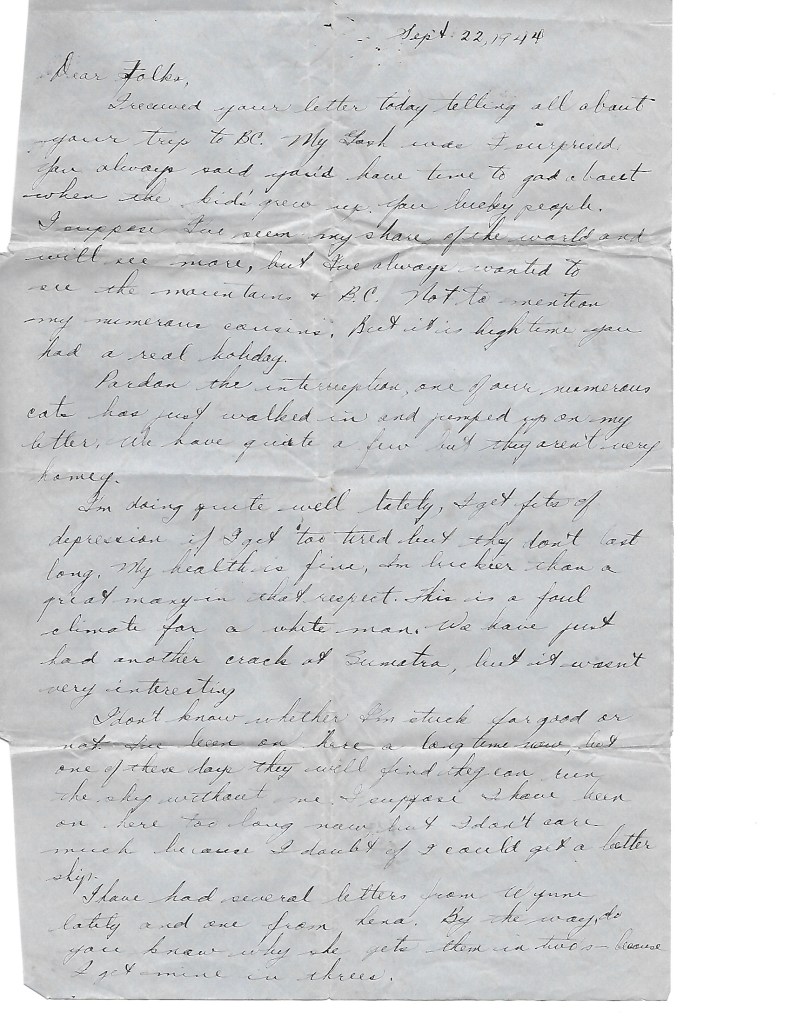 Sept. 22, 1944
Dear Folks,
I received your letter today telling all about
your trip to BC. My Gosh was I surprised.
You always said you'd have time to gad about
when the kids grew up. You lucky people.
I suppose I've seem my share of the world and
will see more, but I've always wanted to
see the mountains & B.C. Not to mention
my numerous cousins. But it is high time you
had a real holiday.
Pardon the interruption, one of our numerous
cats has just walked in and jumped up on my
letter. We have quite a few but they aren't very
homey.
I'm doing quite well lately, I get fits of
depression if I get too tired but they don't last
long. My health is fine, I'm luckier than a
great many in that respect. This is a foul
climate for a white man. We have just
had another crack at Sumatra, but it wasn't
very interesting
I don't know whether I'm stuck for good or
not I've been on here a long time now, but
one of these days they will find they can run
the ship without me. I suppose I have been
on here too long now but I don't care
much because I doubt if I could get a better
ship.
I have had several letters from Wynne
lately and one from Lena. By the way, do
you know why she gets them in twos - because
I get mine in threes.